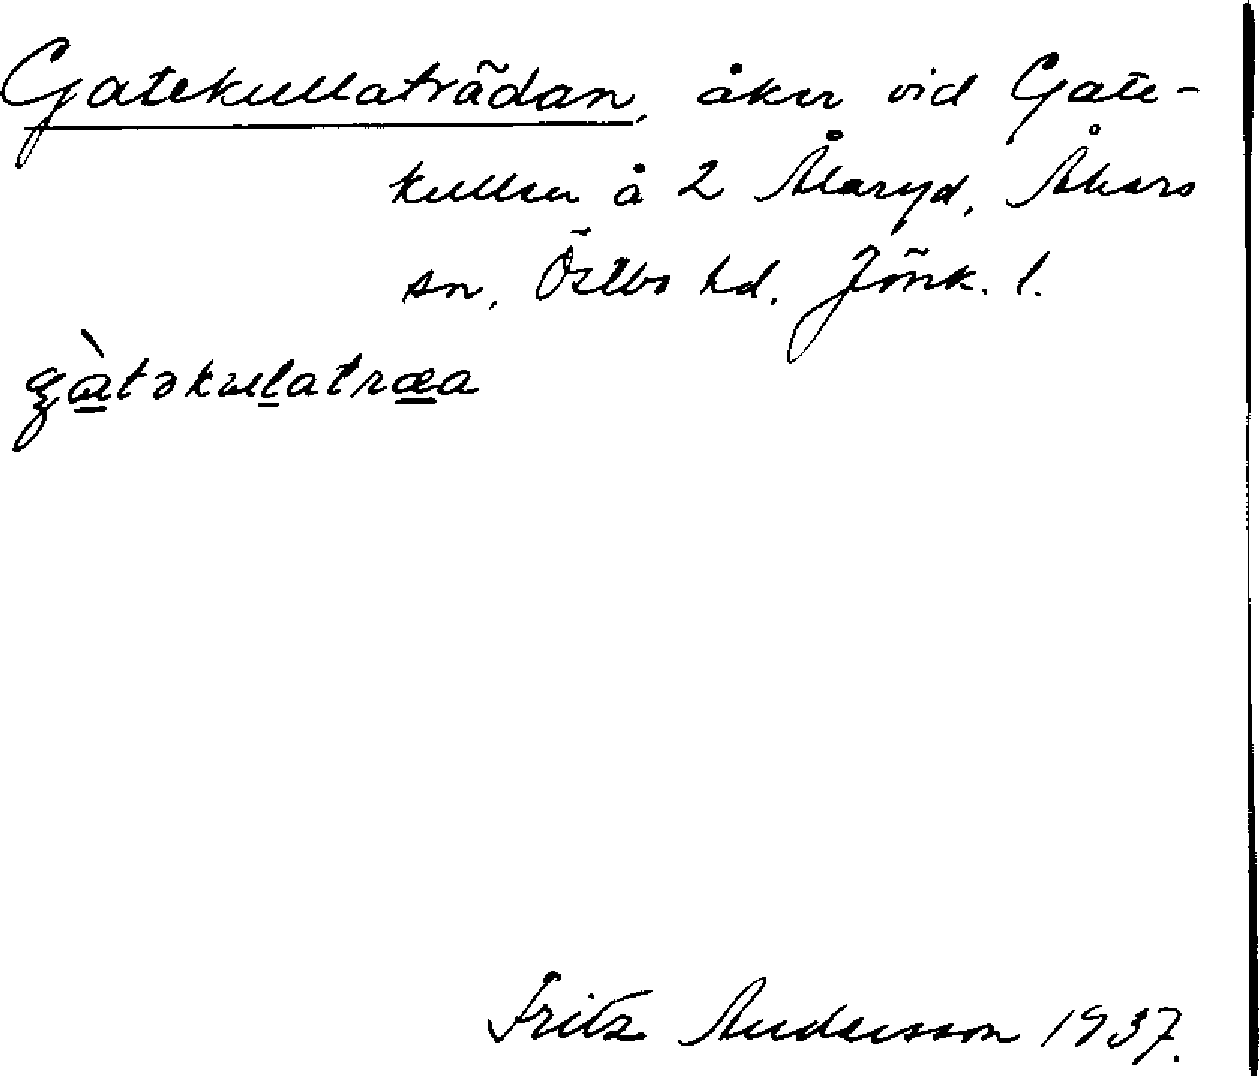 Gatekullaträdan, åker vid Gate-
kullen å 2 Ålaryd, Åkers
sn, Östbo hd. Jönk. l.
gàtəkullatræa
Fritz Andersson 1937.